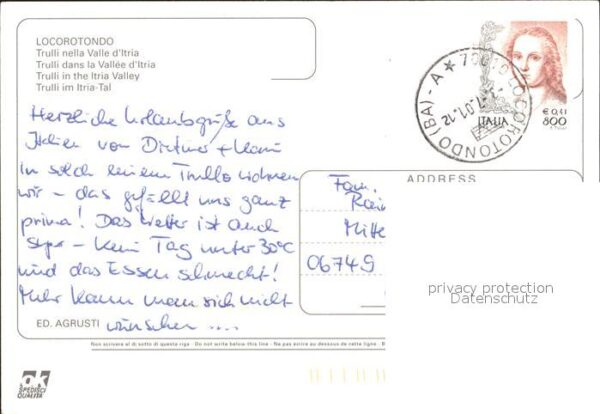 LOCOROTONDO
Trulli nella Valle d'Itria
Trulli dans la Vallée d'Itria
Trulli in the Itria Valley
Trulli im Itria-Tal
Herzliche Urlaubsgrüße aus
Italien von Dietmar +
In solch einem Trullo wohnen
wir - das gefällt uns ganz
prima! Das Wetter ist auch
super - kein Tag unter 30°C
und das Essen schmeckt!
Mehr kann man sich nicht
wünschen ....
ED. AGRUSTI
Non scrivere al di sotto di questa riga - Do not write below this line - Ne pas écrire au dessous de cette ligne
ok
SPEDISCI
QUALITÀ
70010 LOCOROTONDO (BA) - A *
ITALIA
€ 0,41
800
ADDRESS
Fam.
Rai
Mitte
06749
privacy protection
Datenschutz